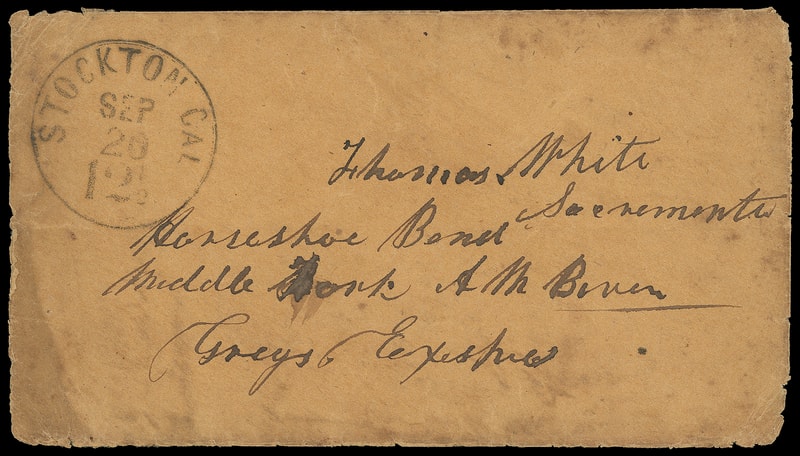 STOCKTON CAL
SEP
20
Thomas White
Sacremento
Horseshoe Bend
Middle Fork A M River
Greys Express